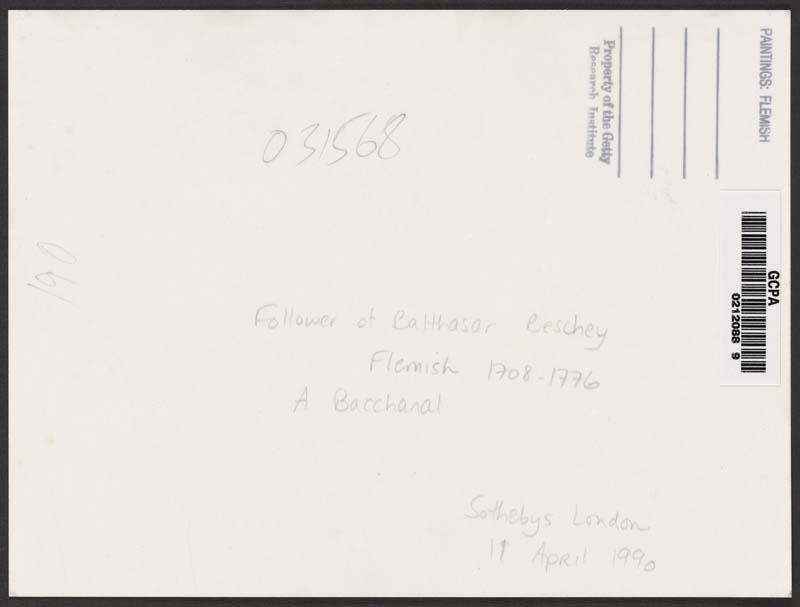 PAINTINGS: FLEMISH
Property of the Getty
Research Institute
031568
190
GCPA
0212088 9
Follower of Balthasar Beschey
Flemish 1708-1776
A Bacchanal
Sothebys London
11 April 1990